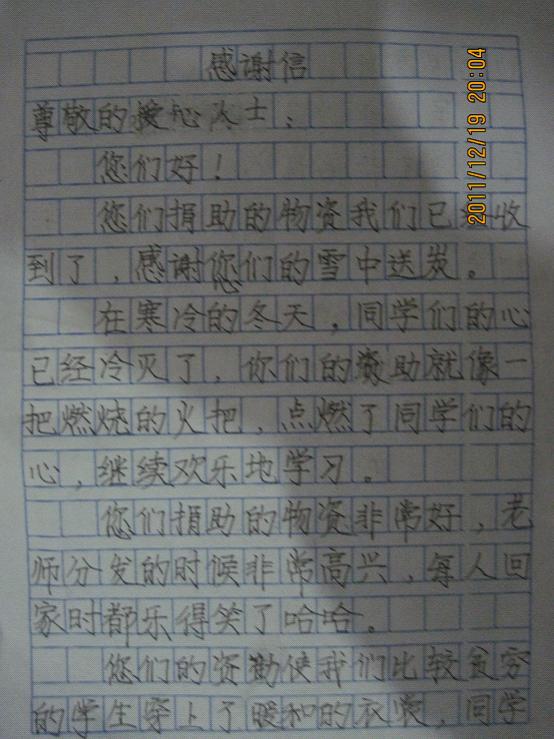 感谢信
尊敬的援心人士：
您们好！
您们捐助的物资我们已 收
到了，感谢您们的雪中送炭。
在寒冷的冬天，同学们的心
已经冷灭了，你们的 助就像一
把燃烧的火把，点燃了同学们的
心，继续欢乐地学习。
您们捐助的物资非常好，老
师分发的时候非常高兴，每人回
家时都乐得笑了哈哈。
您们的资 使我们比较贫穷
的学生穿上了暖和的衣 ，同学
2011/12/19 20:04